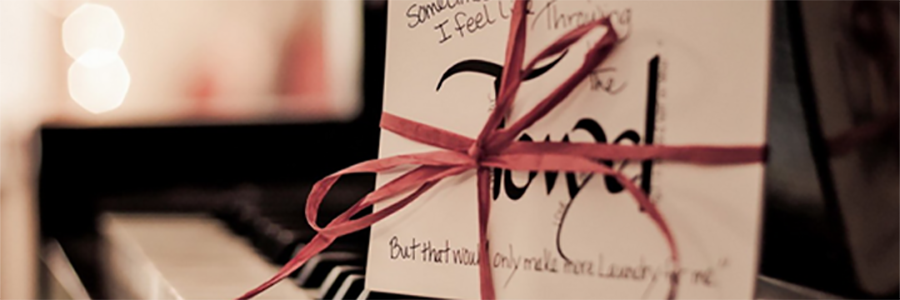 Sometimes
I feel like Throwing
the
Towel
But that would only make more Laundry for me."